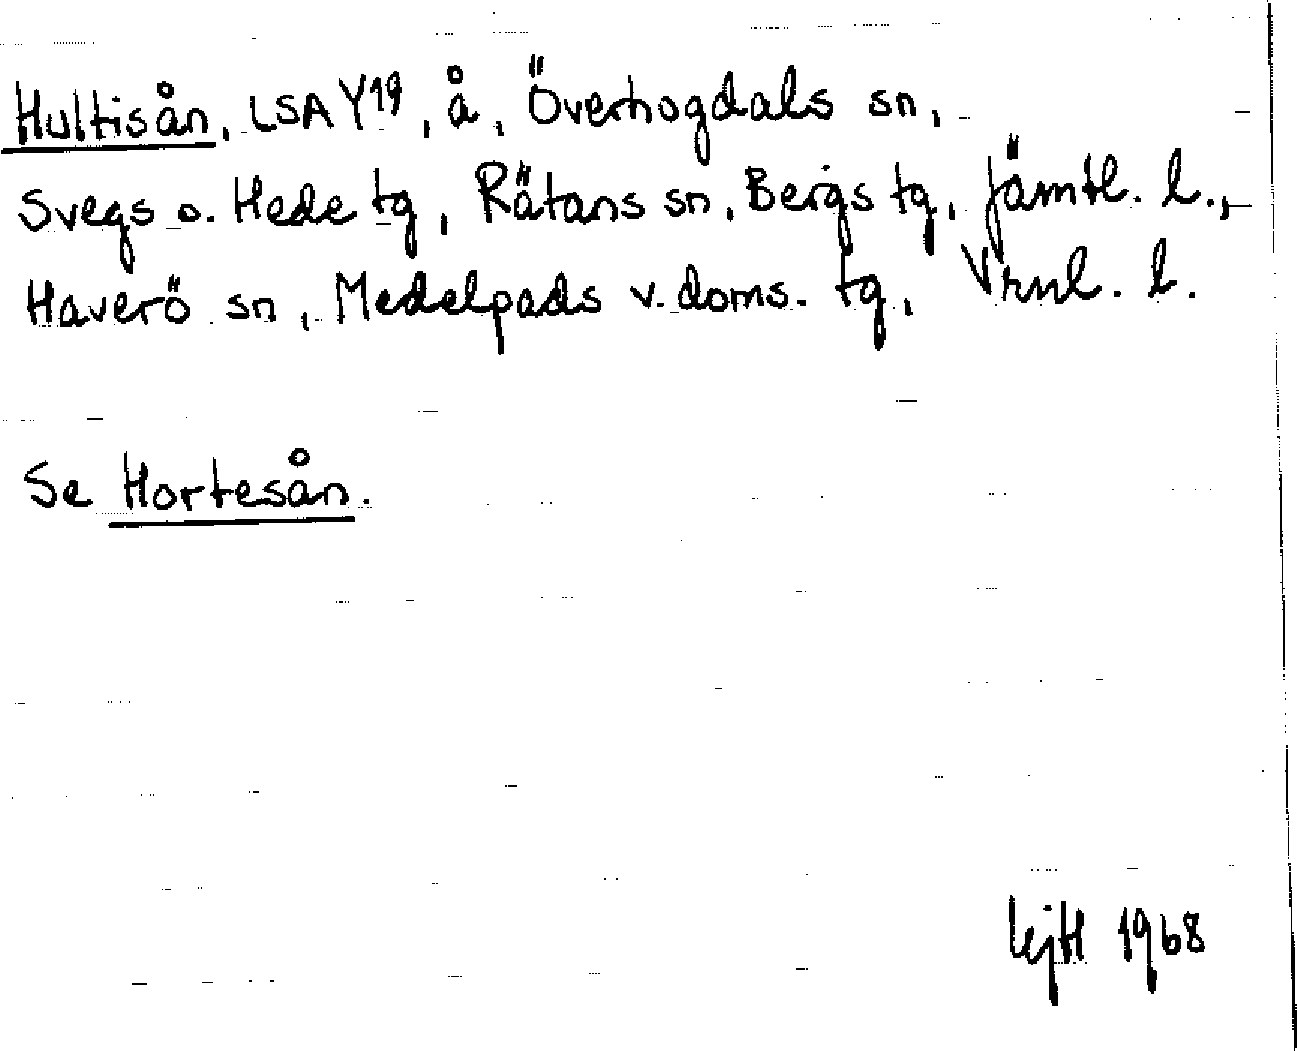 Hultisån, LSA Y19, å, Överhogdals sn,
Svegs o. Hede tg, Rätans sn, Bergs tg, Jämtl. l.,
Haverö sn, Medelpads v. doms. tg, Vrnl. l.
Se Hortesån.
1968